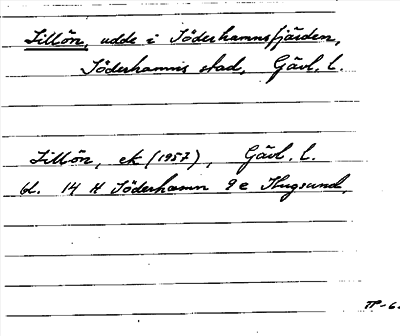 Lillön, udde i Söderhamnsfjärden,
Söderhamns stad, Gävl. l.
Lillön, ek (1957), Gävl. l.
bl. 14 H Söderhamn 9 e Flugsund,
TP-6.